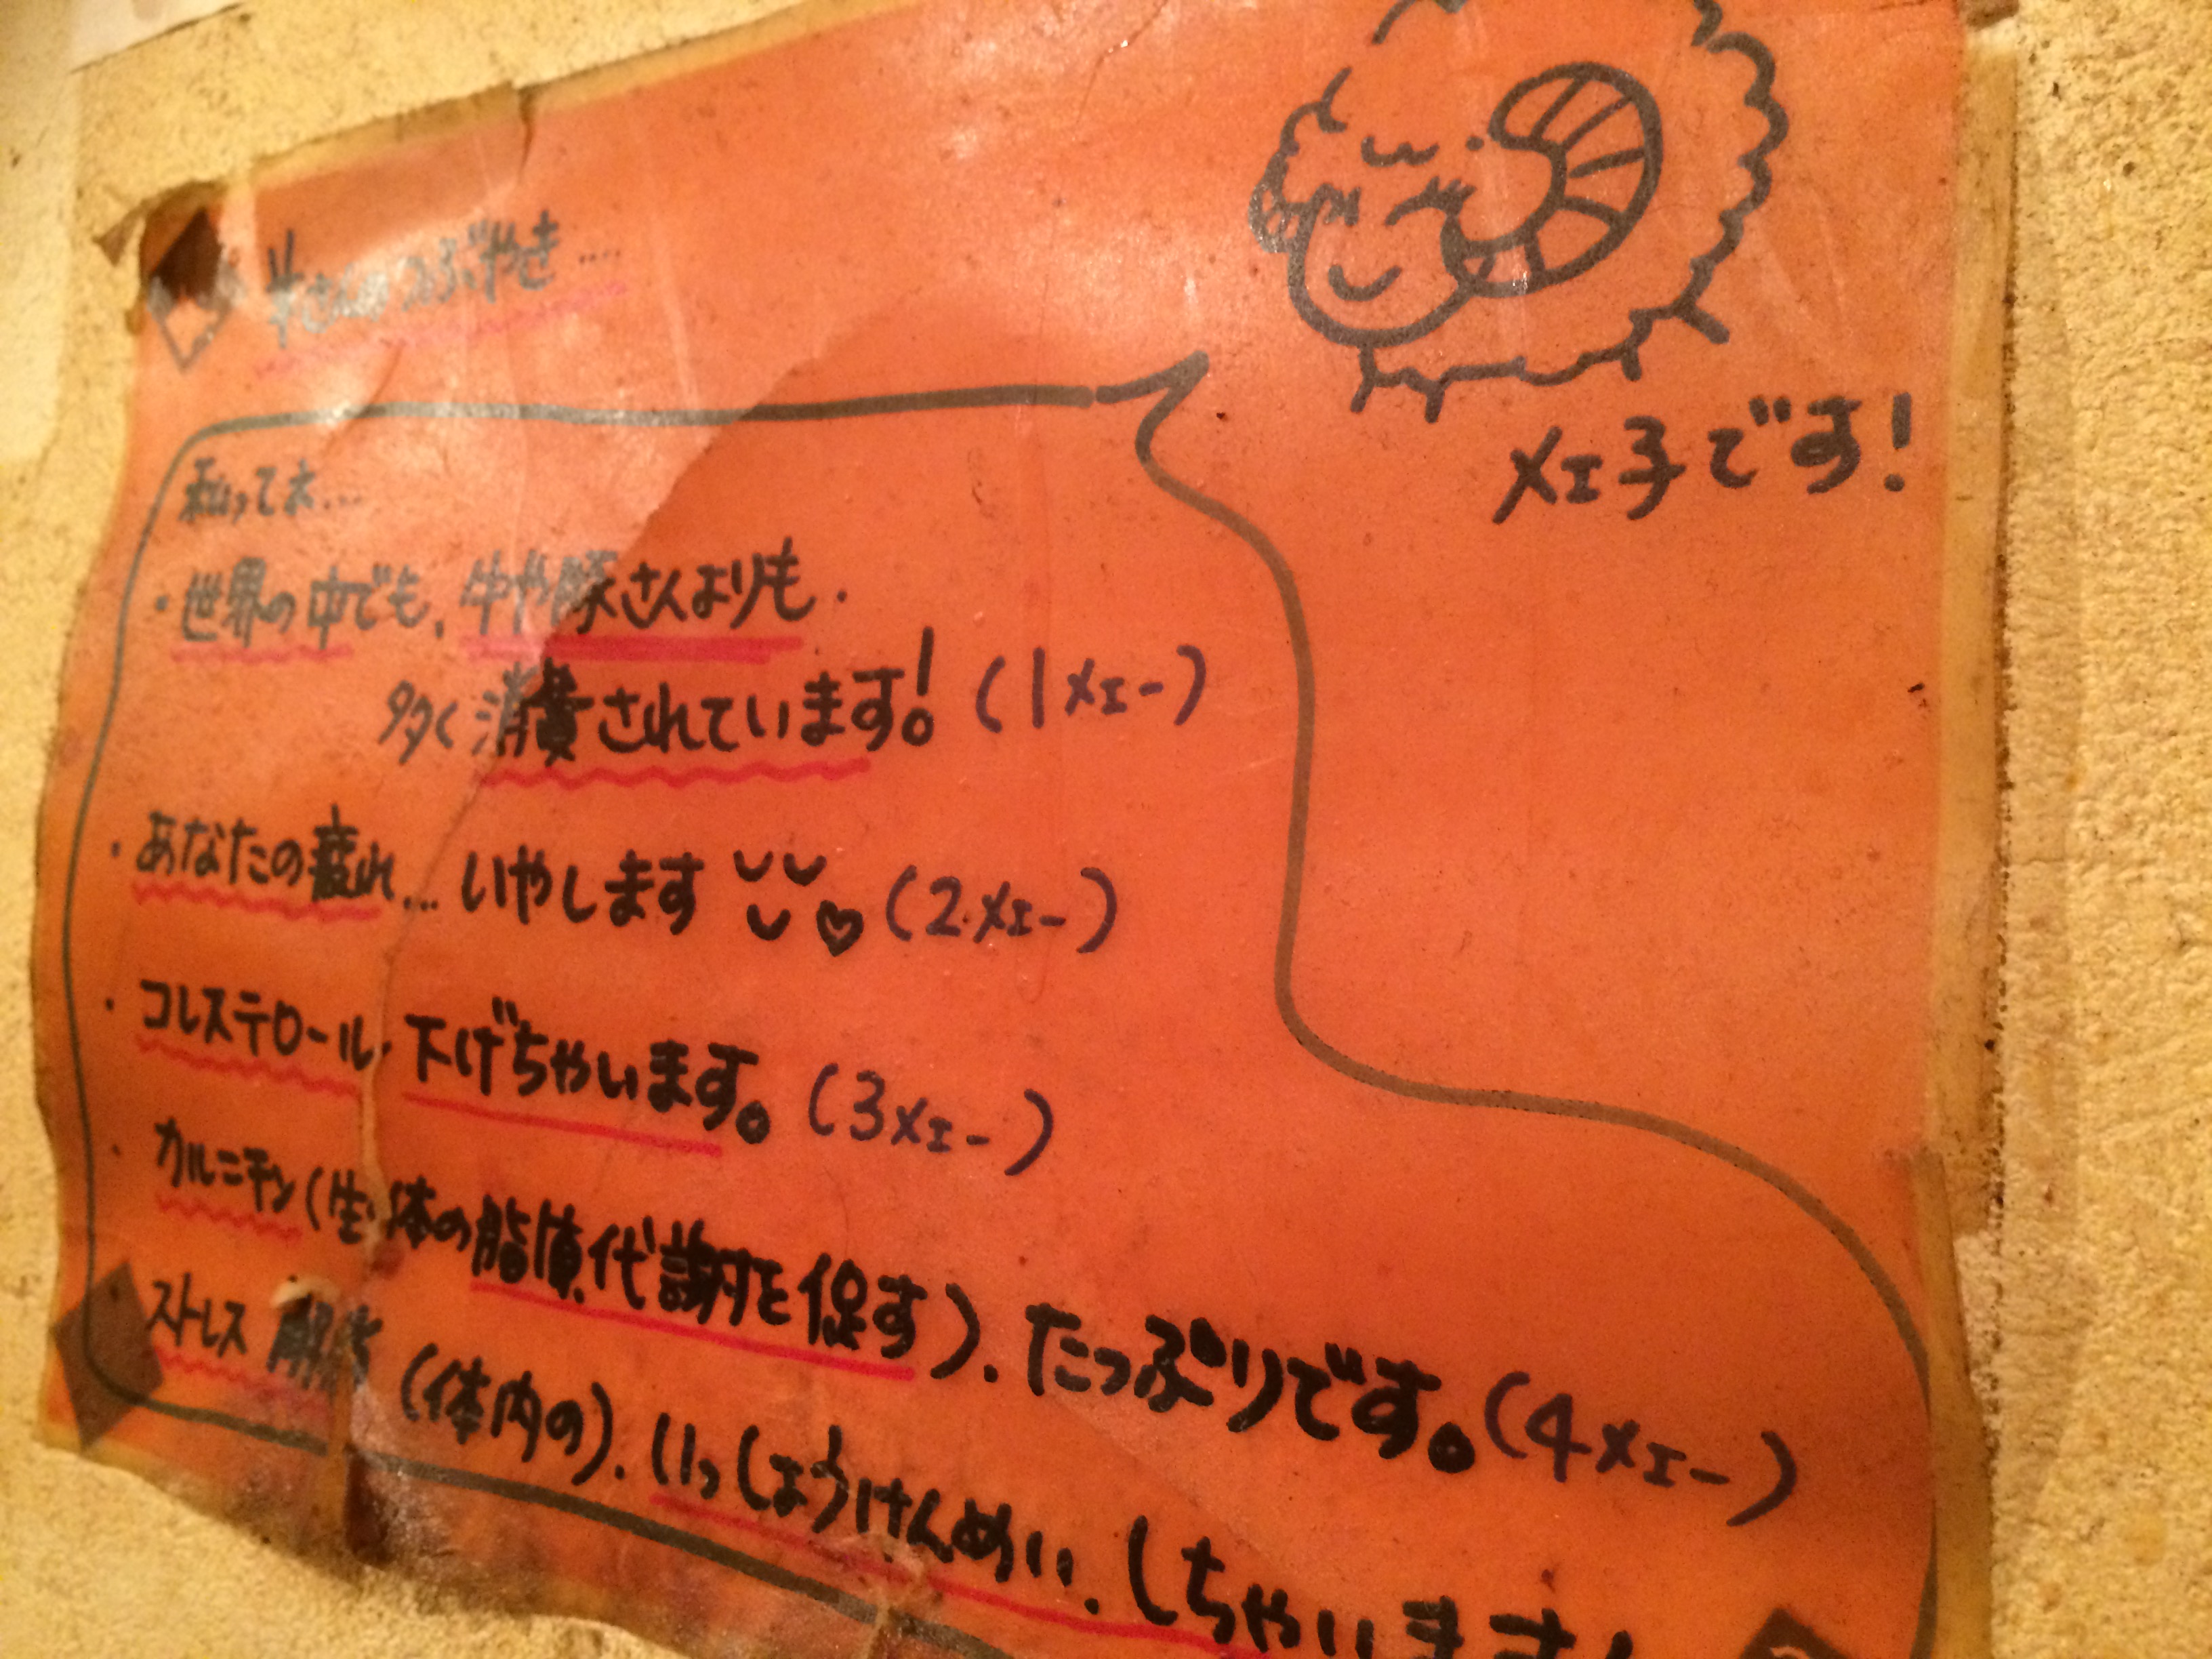 羊さんのつぶやき....
メェ子です!
私ってネ...
・世界の中でも、牛や豚さんよりも、
多く消費されています! (1メェー)
・あなたの疲れ...いやします (2メェー)
・コレステロール、下げちゃいます。(3メェー)
・カルニチン(生体の脂質代謝を促す)、たっぷりです。(4メェー)
ストレス解消(体内の)、いっしょうけんめい、しちゃいます